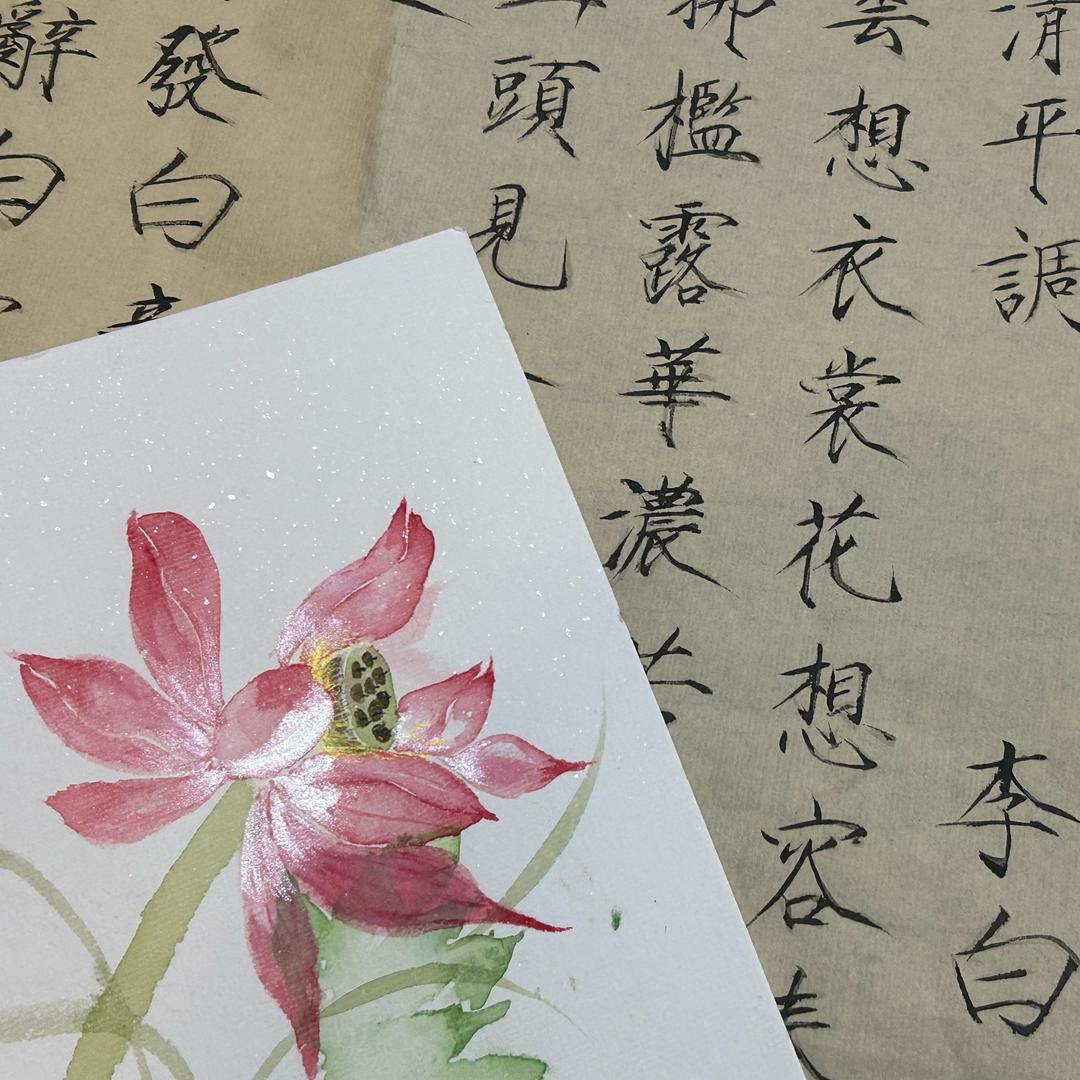 清平調 李白
雲想衣裳花想容
拂檻露華濃
頭見
發白
辭白